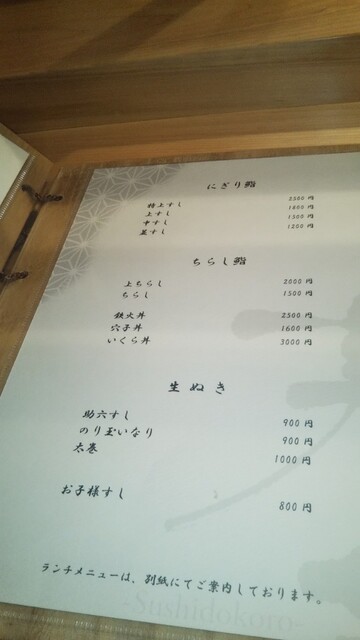 にぎり鮨
特上すし 2500 円
上すし 1800 円
中すし 1300 円
並すし 1200 円
ちらし鮨
上ちらし 2000 円
ちらし 1500 円
鉄火丼 2500 円
穴子丼 1600 円
いくら丼 3000 円
生ぬき
助六すし 900 円
のり玉いなり 900 円
太巻 1000 円
お子様すし 800 円
ランチメニューは、別紙にてご案内しております。
-Sushidokoro-